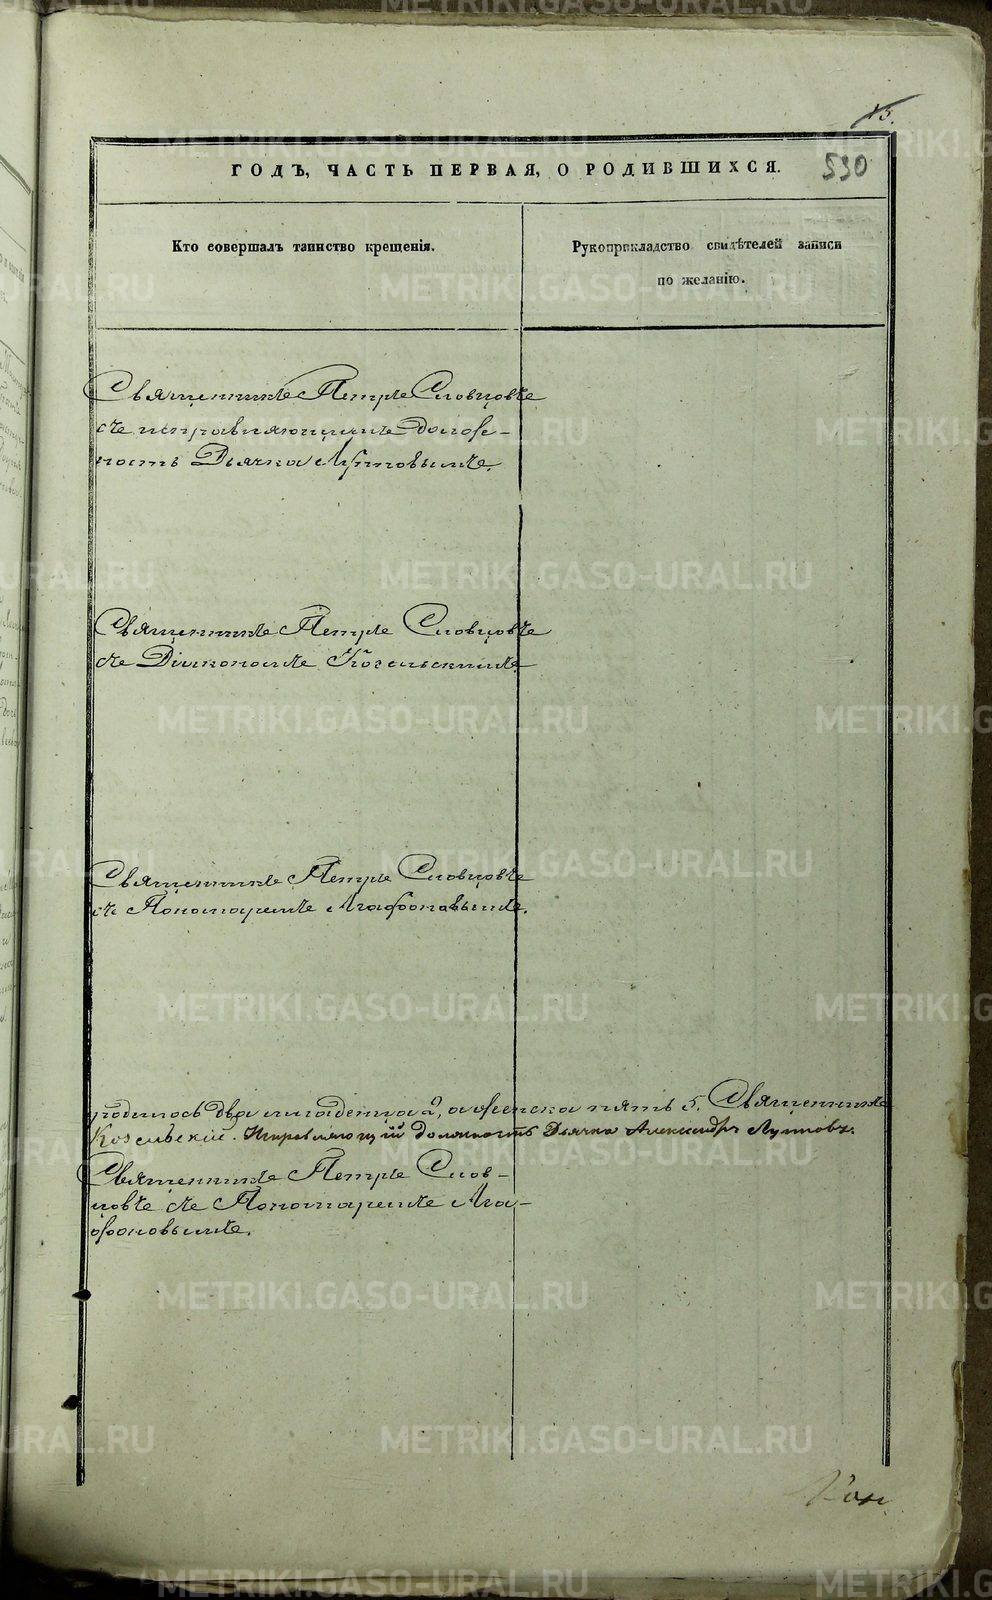 15.
530
ГОДЪ, ЧАСТЬ ПЕРВАЯ, О РОДИВШИХСЯ.
Кто совершалъ таинство крещенія.
Рукоприкладство свидѣтелей записи
по желанію.
Священникъ Петръ Словцовъ
съ исправляющимъ долж-
ность Дьячка Луповымъ.
Священникъ Петръ Словцовъ
съ Діакономъ Козельскимъ
Священникъ Петръ Словцовъ
съ Пономаремъ Агафоновымъ.
родилось два младенца 2, а женска пять 5. Священникъ
Козельскій. Исправляющій должность Дьячка Александръ Луповъ.
Священникъ Петръ Слов-
цовъ съ Пономаремъ Ага-
фоновымъ.
METRIKI.GASO-URAL.RU